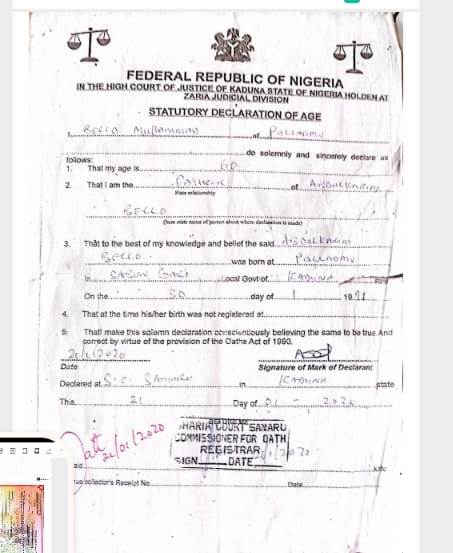 FEDERAL REPUBLIC OF NIGERIA
IN THE HIGH COURT OF JUSTICE OF KADUNA STATE OF NIGERIA HOLDEN AT
ZARIA JUDICIAL DIVISION
STATUTORY DECLARATION OF AGE
I, Bello of
do solemnly and sincerely declare as
follows:
1. That my age is 60
2. That I am the of
State relationship
BELLO
(here state name of person about whom declaration is made)
3. That to the best of my knowledge and belief the said
Bello was born at
In Local Govt of KADUNA
On the 30 day of 1 19
4. That at the time his/her birth was not registered at
5. That I make this solemn declaration conscientiously believing the same to be true And
correct by virtue of the provision of the Oaths Act of 1990.
21/1/2020
Date Signature of Mark of Declarant
Declared at S.C. Samaru in KADUNA state
This 21 Day of 01 - 2020
Date 21/01/2020
SHARIA COURT SAMARU
COMMISSIONER FOR OATH
REGISTRAR
SIGN DATE
collector's Receipt No Date